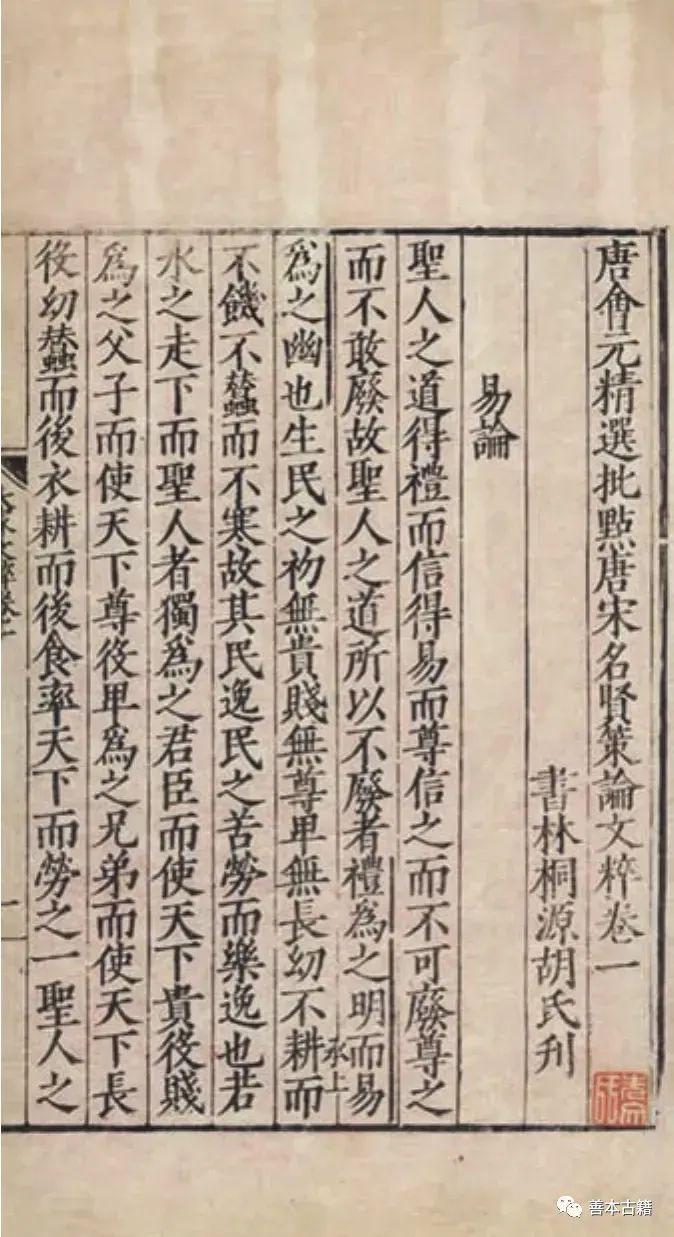 唐會元精選批點唐宋名賢策論文粹卷一
書林桐源胡氏刋
易論
聖人之道得禮而信得易而尊信之而不可廢尊之
而不敢廢故聖人之道所以不廢者禮爲之明而易
爲之幽也生民之初無貴賤無尊卑無長幼不耕而
承上
不饑不蠶而不寒故其民逸民之苦勞而樂逸也若
水之走下而聖人者獨爲之君臣而使天下貴役賤
爲之父子而使天下尊役卑爲之兄弟而使天下長
役幼蠶而後衣耕而後食率天下而勞之一聖人之
善本古籍